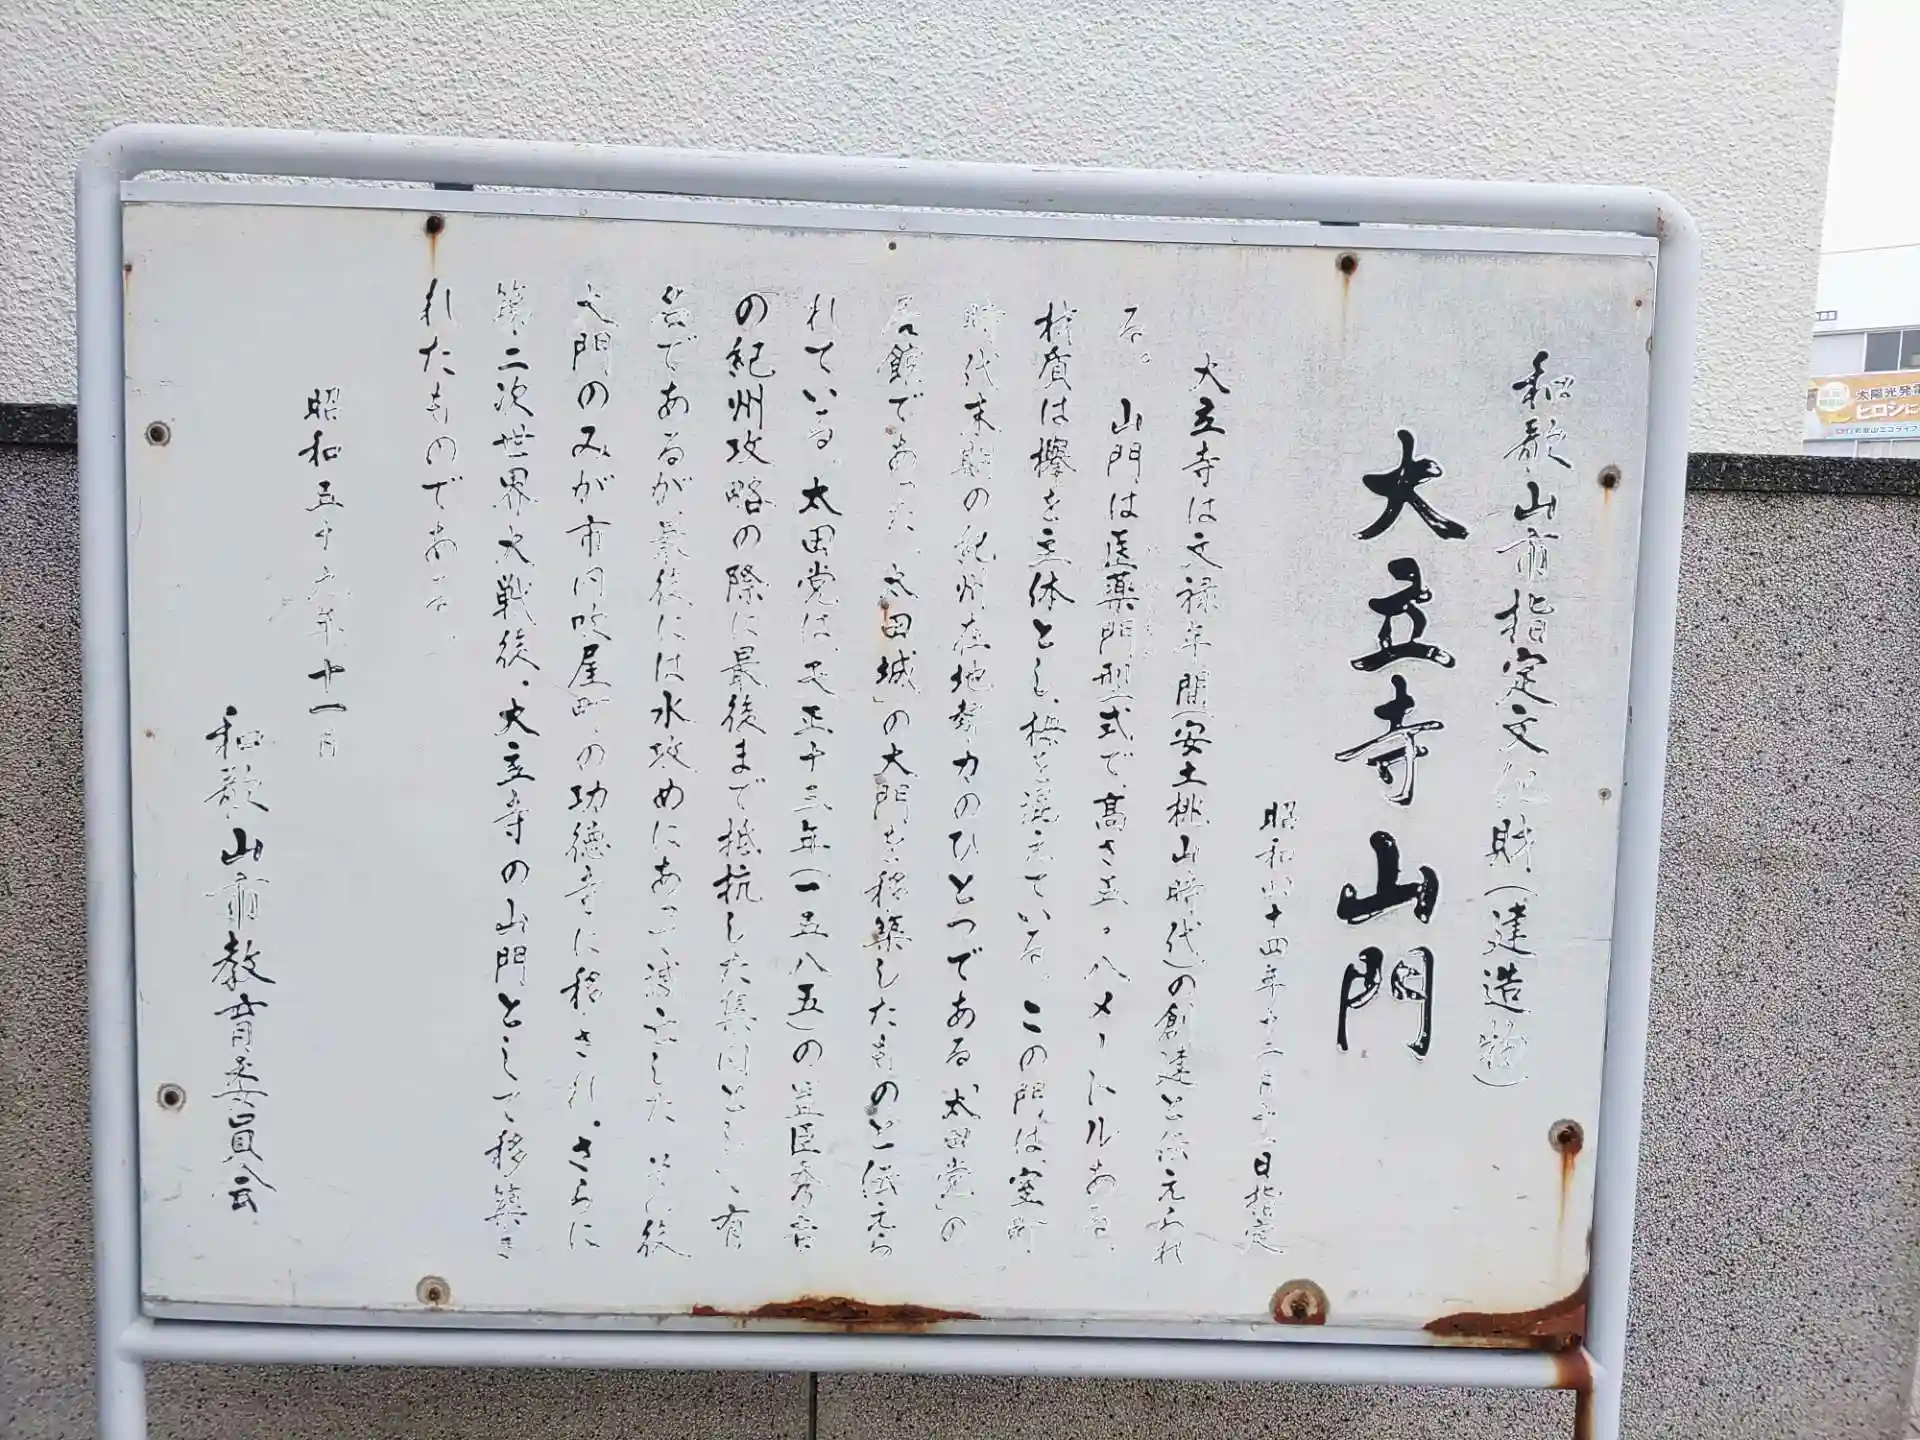 和歌山市指定文化財(建造物)
大立寺山門
昭和四十四年十二月十二日指定
大立寺は文禄年間(安土桃山時代)の創建と伝えられ
る。山門は医薬門型式で、高さ五・八メートルある。
材質は欅を主体とし、栂を混えている。この門は、室町
時代末期の紀州在地勢力のひとつである太田党」の
居館であった、太田城」の大門を移築したものと伝えら
れている。太田党は、天正十三年(一五八五)の豊臣秀吉
の紀州攻略の際に最後まで抵抗した集団として有
名であるが、最後には水攻めにあって滅亡した。その後
大門のみが市内吹屋町の功徳寺に移され、さらに
第二次世界大戦後、大立寺の山門として移築さ
れたものである。
昭和五十六年十一月
和歌山市教育委員会
太陽光発電
ヒロシに